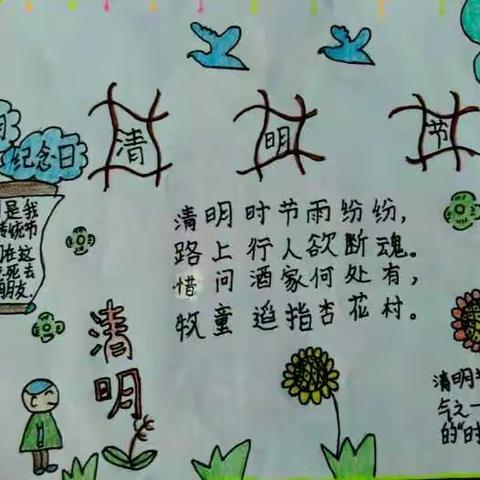 清 明 节
纪念日
清明时节雨纷纷,
路上行人欲断魂。
惜问酒家何处有,
牧童遥指杏花村。
是我
传统节
在这
死去
朋友.
清明
清明
气之一
的"时